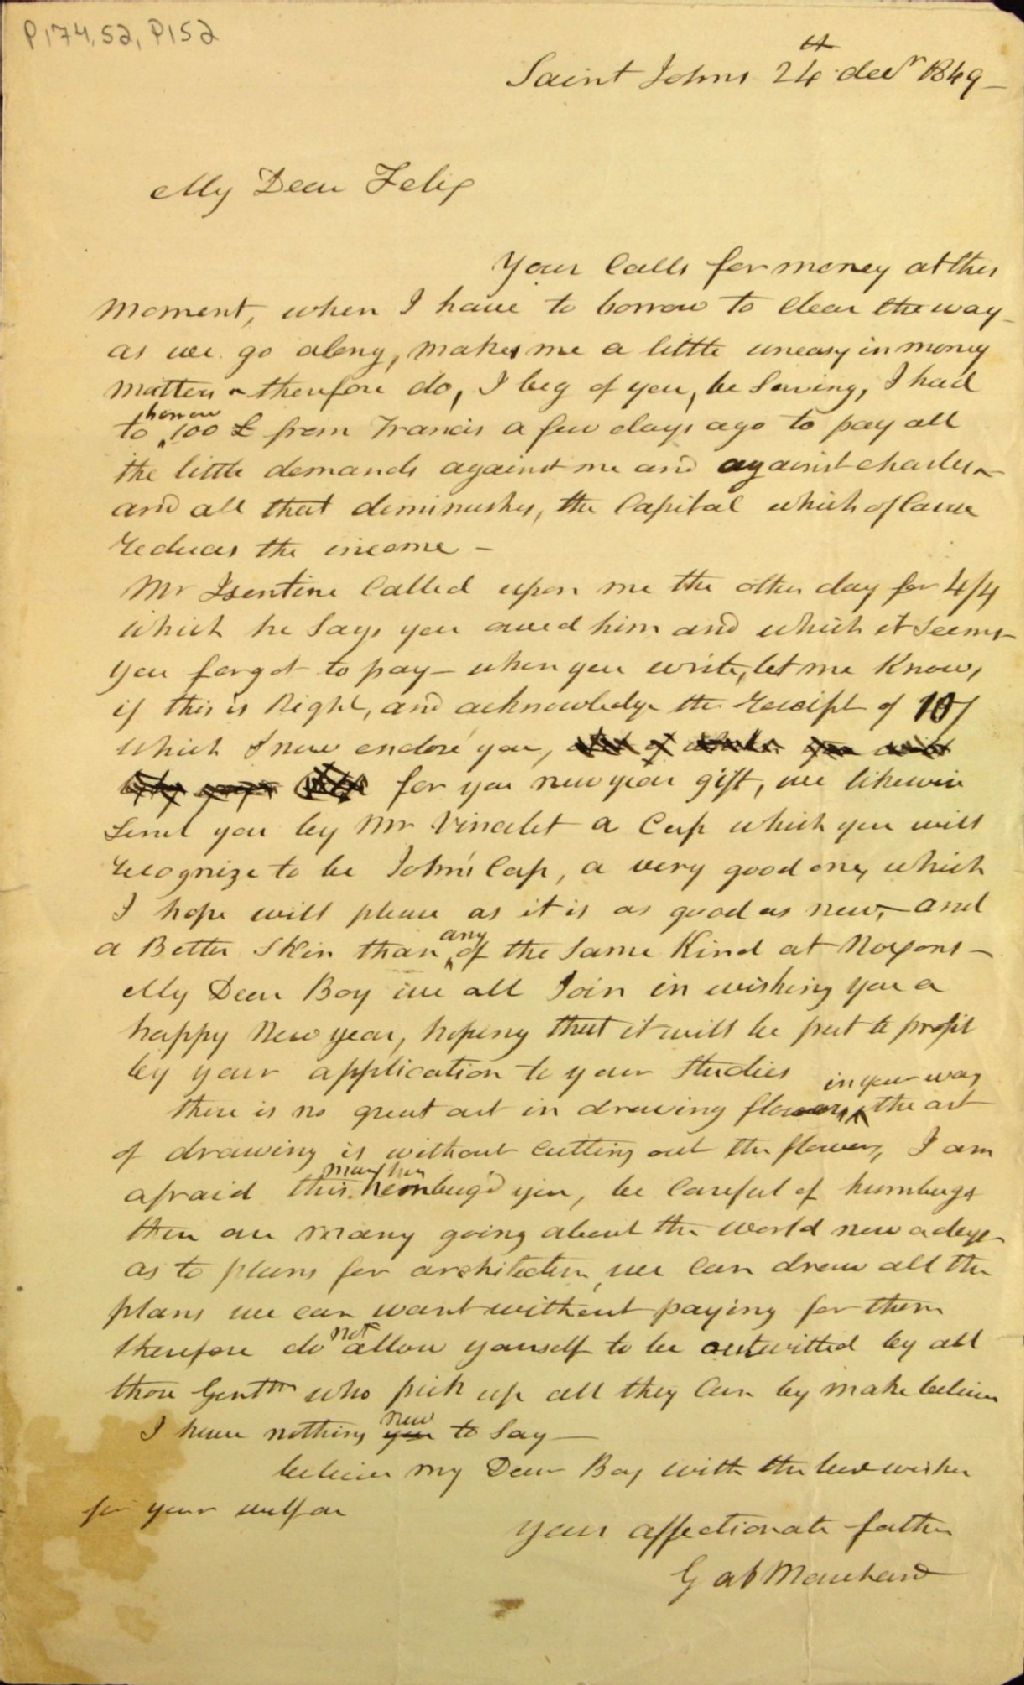 P174,S2,P152
Saint Johns 24th decr 1849 –
My Dear Felix
Your Calls for money at this
moment, when I have to borrow to clear the way
as we go along, makes me a little uneasy in money
matters therefore do, I beg of you, be Saving, I had
to borrow 100 £ from Francis a few days ago to pay all
the little demands against me and against charles –
and all that diminushes, the Capital which of Course
reduces the income –
Mr Isentine Called upon me the other day for 4/4
which he Says you owed him and which it Seems
you forgot to pay – when you write, let me Know,
if this is Right, and acknowledge the receipt of 10/
which I now enclose you,
for you new year gift, we likewise
Send you by Mr Vincelet a Cap which you will
recognize to be John's Cap, a very good one, which
I hope will please as it is as good as new, – and
a Better Skin than any of the Same Kind at Noyons –
My Dear Boy we all Join in wishing you a
happy New year, hoping that it will be put to profit
by your application to your Studies
there is no great art in drawing flowers in your way, the art
of drawing is without cutting out the flowers, I am
afraid this man has humbug'd you, be Careful of humbugs
there are many going about the world now a days –
as to plans for architecture, we Can draw all the
plans we can want without paying for them
therefore do not allow yourself to be outwitted by all
those Gentlm who pick up all they Can by make believe
I have nothing new to Say –
believe my Dear Boy with the best wishes
for your welfare
Your affectionate father
G abl Marchand